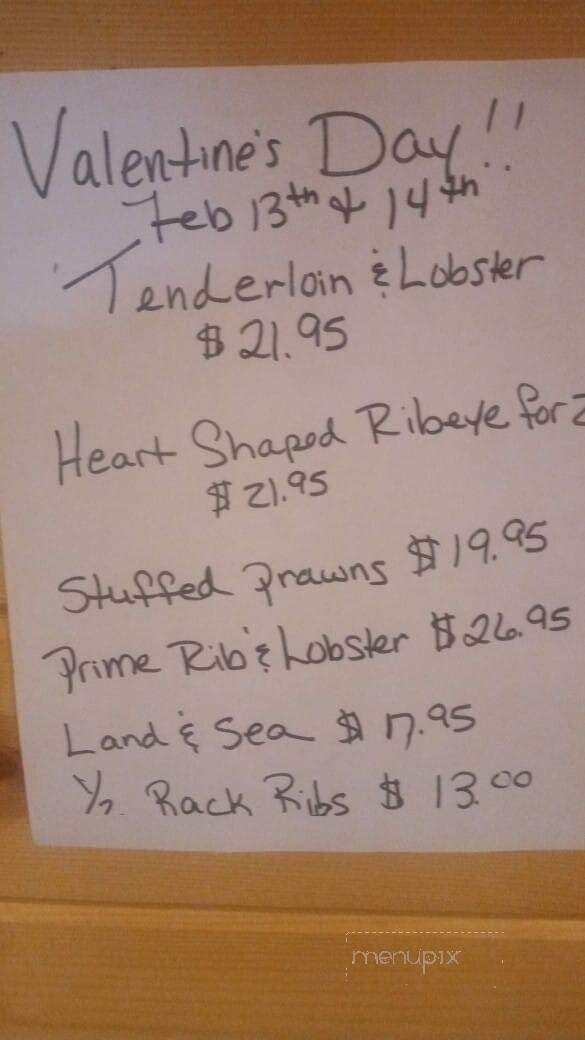 Valentine's Day!!
Feb 13th & 14th
Tenderloin & Lobster
$21.95
Heart Shaped Ribeye for 2
$21.95
Stuffed Prawns $19.95
Prime Rib & Lobster $26.95
Land & Sea $17.95
1/2 Rack Ribs $13.00
menupix